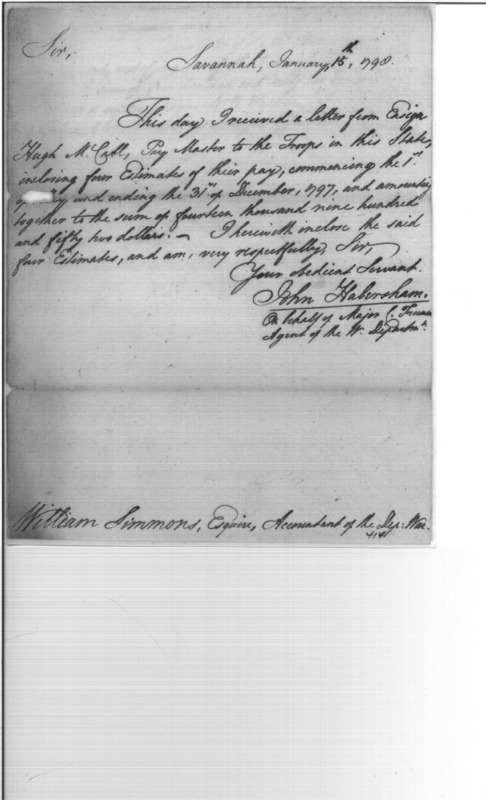 Sir,
Savannah, January, 15th, 1798.
This day I received a letter from Ensign
Hugh McCall, Pay Master to the Troops in this State,
inclosing four Estimates of their pay, commencing the 1st.
of and ending the 31st. of December, 1797, and amounting
together to the sum of fourteen thousand nine hundred
and fifty two dollars. — I herewith inclose the said
four Estimates, and am, very respectfully, Sir,
Your obedient Servant.
John Habersham.
On behalf of Major C. Freeman
Agent of the W. Departmt.
William Simmons, Esquire, Accountant of the Dep: War.